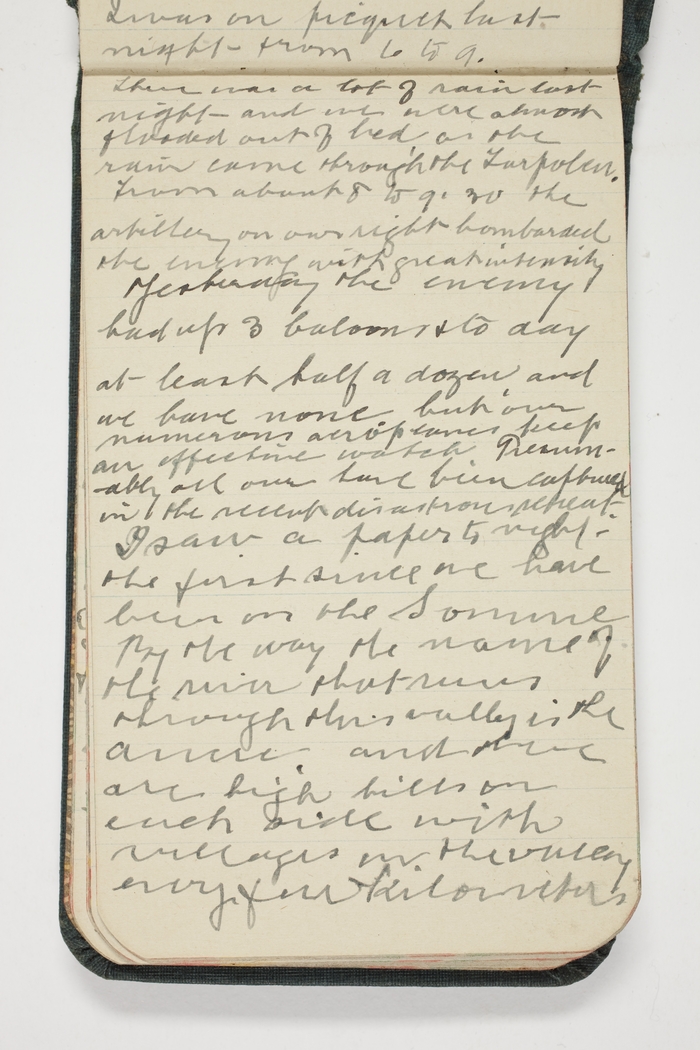 I was on picquet last
night from 6 to 9.
There was a lot of rain last
night and we were almost
flooded out of bed as the
rain came through the Tarpolen.
From about 8 to 9.30 the
artillery on our right bombarded
the enemy with great intensity
Yesterday the enemy
had up 3 baloons & to day
at least half a dozen and
we have none but our
numerous aeroplanes keep
an effective watch Presum-
-ably all our have been captured
in the recent disastrous retreat.
I saw a paper to night.
the first since we have
been on the Somme
By the way the name of
the river that runs
through this valley is the
and there
are high hills on
each side with
villages in the valley
every few kilometers